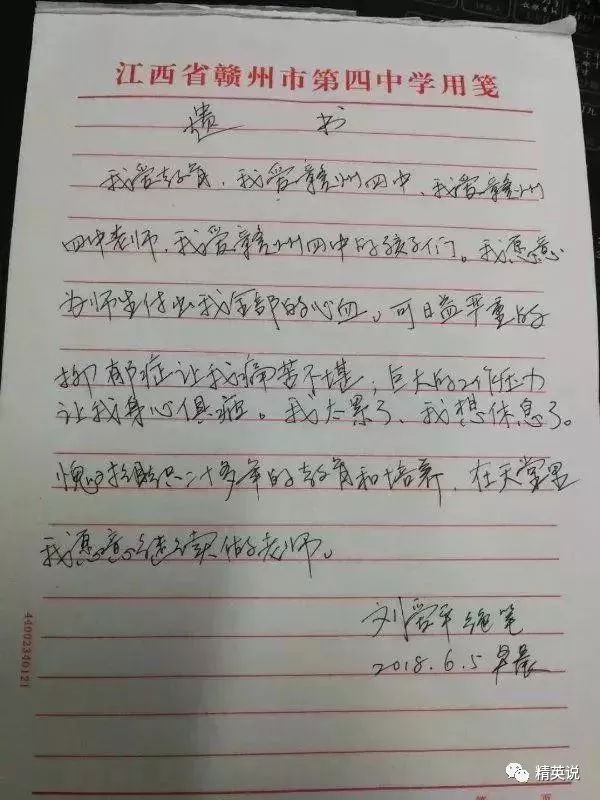 江西省赣州市第四中学用笺
遗 书
我爱教育，我爱赣州四中，我爱赣州
四中老师，我爱赣州四中的孩子们。我愿意
为师生付出我全部的心血。可日益严重的
抑郁症让我痛苦不堪；巨大的工作压力
让我身心俱疲。我太累了，我想休息了。
愧对组织二十多年的教育和培养，在天堂里
我愿意继续做老师。
刘爱平 绝笔
2018.6.5 早晨
44002340121
精英说